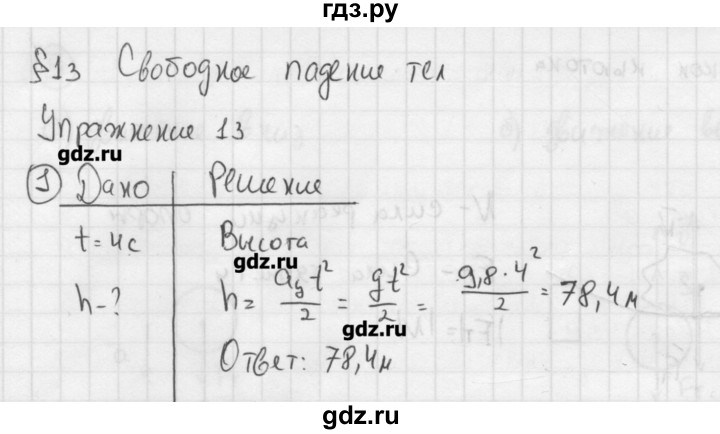 гдз.ру
§13 Свободное падение тел
Упражнение 13
gdz.ru
1 Дано Решение
t = 4с Высота
gdz.ru
h - ? h = a_y t²/2 = gt²/2 = 9,8·4²/2 = 78,4 м
gdz.ru
Ответ: 78,4 м
gdz.ru